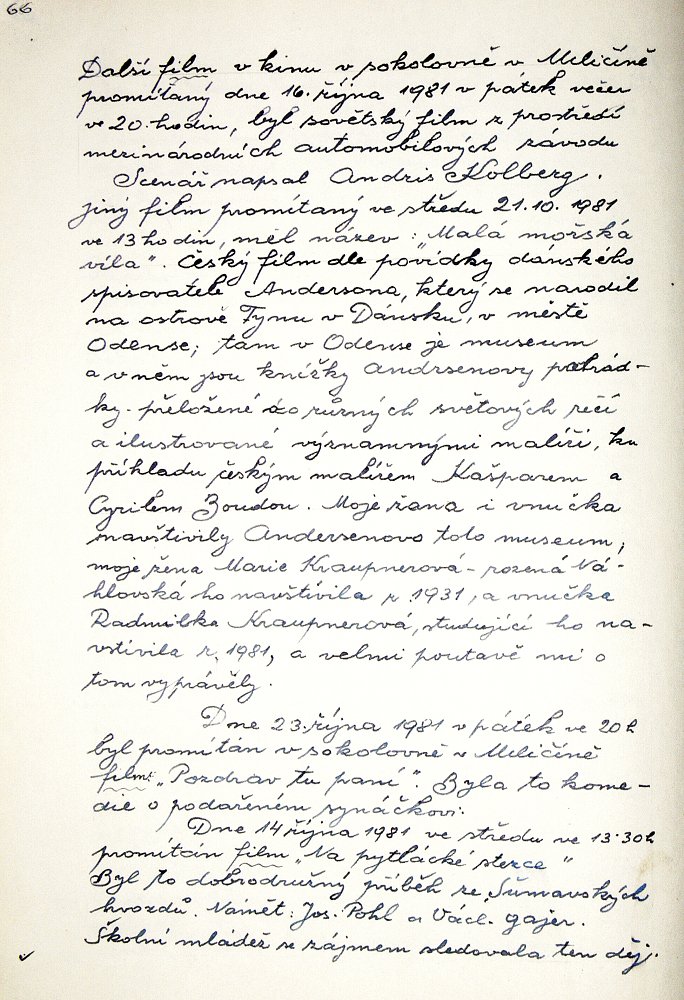 66
Další film v kinu v sokolovně v Miličíně
promítaný dne 16. října 1981 v pátek večer
ve 20. hodin, byl sovětský film z prostředí
mezinárodních automobilových závodu
Scenář napsal Andris Kolberg.
Jiný film promítaný ve středu 21.10. 1981
ve 13 hodin, měl název: "Malá mořská
víla". Český film dle povídky dánského
spisovatele Andersona, který se narodil
na ostrově Fynu v Dánsku, v městě
Odense; tam v Odense je museum
a v něm jsou knížky Andrsenovy pohád-
ky. přeložené do různých světových řečí
a ilustrované významnými malíři, ku
příkladu českým malířem Kašparem a
Cyrilem Boudou. Moje žana i vnučka
navštivily Andersenovo toto museum,
moje žena Marie Kraupnerová - rozená Vá-
hlovská ho navštívila r. 1931, a vnučka
Radmilka Kraupnerová, studující ho na-
vštivila r. 1981, a velmi poutavě mi o
tom vyprávěly.
Dne 23. října 1981 v pátek ve 20 h
byl promítán v sokolovně v Miličíně
film: "Pozdrav tu paní". Byla to kome-
die o podařeném synáčkovi.
Dne 14 října 1981 ve středu ve 13.30 h
promítán film "Na pytlácké stezce"
Byl to dobrodružný příběh ze Šumavských
hvozdů. Námět: Jos. Pohl a Václ. Gajer.
Školní mládež se zájmem sledovala ten děj.